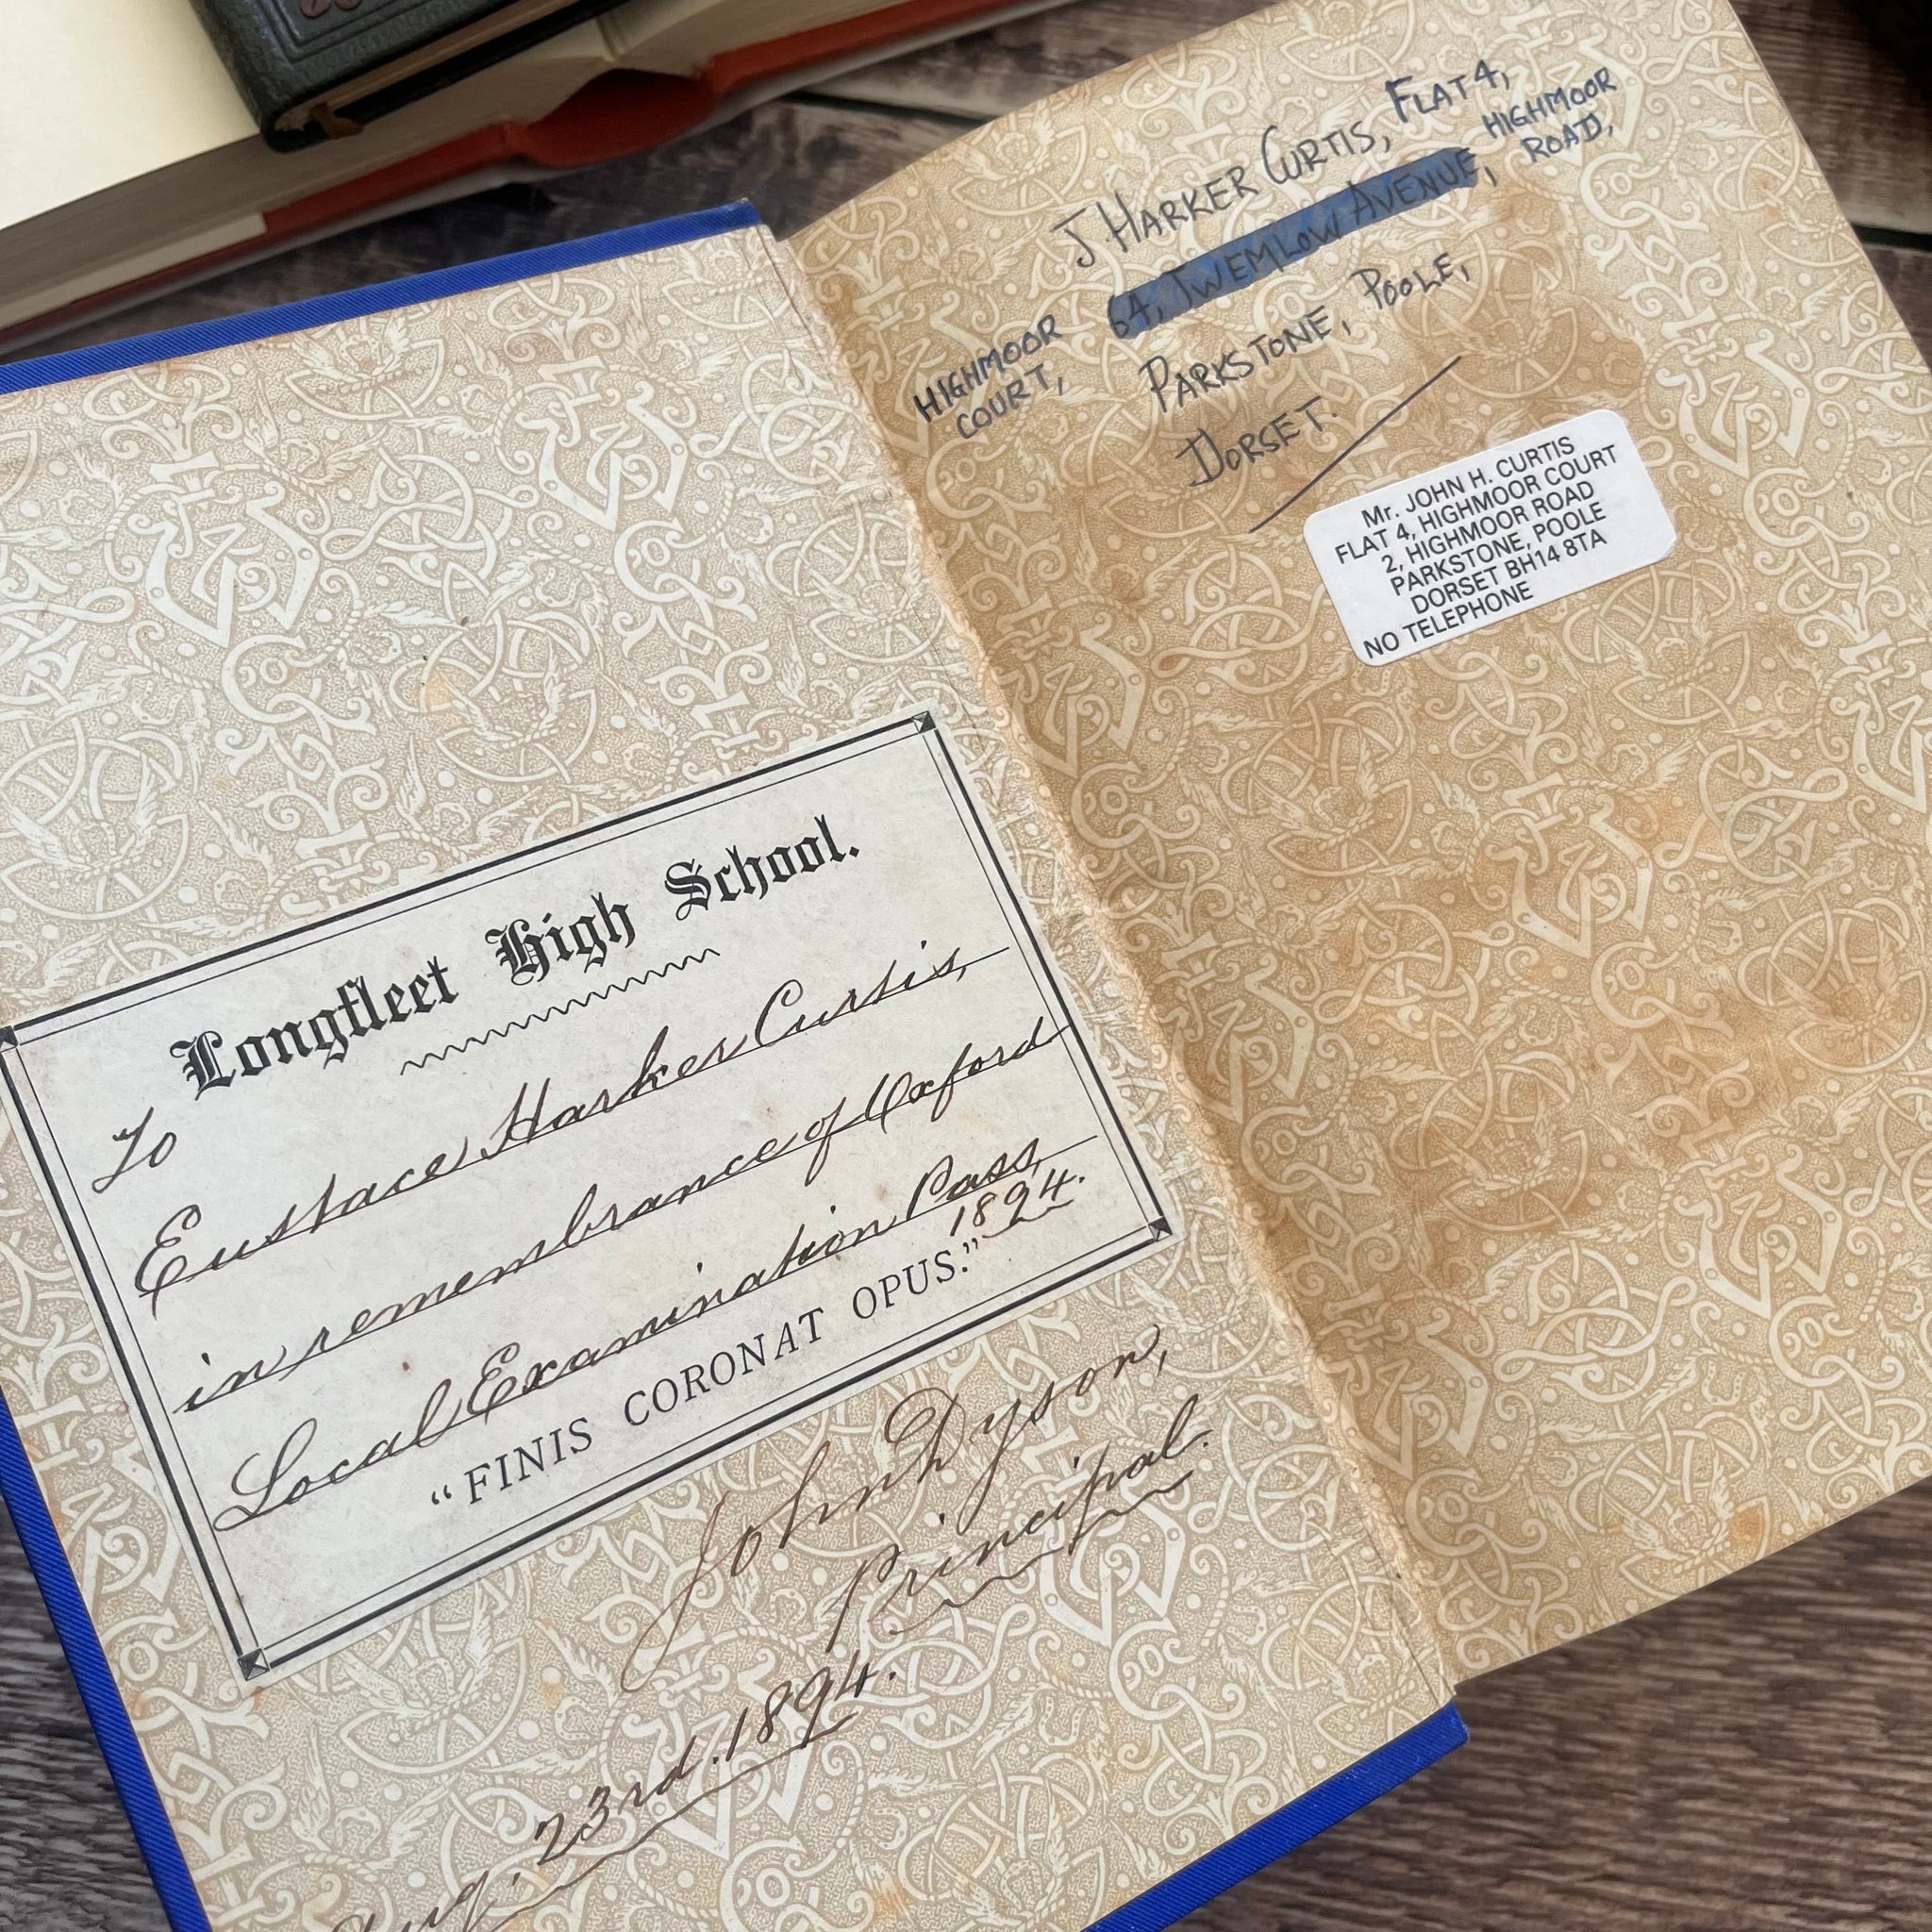 Longfleet High School.
To
Eustace Harker Curtis,
in remembrance of Oxford
Local Examination Pass,
1894.
“FINIS CORONAT OPUS.”
John Dyson,
Principal.
Aug. 23rd. 1894.
J. HARKER CURTIS, FLAT 4,
HIGHMOOR
COURT,
64, TWEMLOW AVENUE, HIGHMOOR
ROAD,
PARKSTONE, POOLE,
DORSET.
Mr. JOHN H. CURTIS
FLAT 4, HIGHMOOR COURT
2, HIGHMOOR ROAD
PARKSTONE, POOLE
DORSET BH14 8TA
NO TELEPHONE